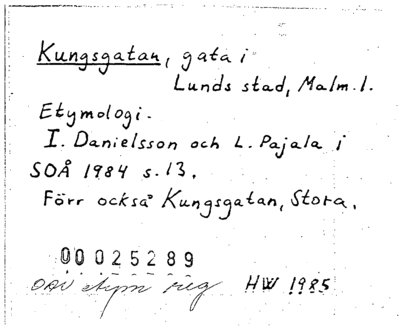 Kungsgatan, gata i
Lunds stad, Malm. l.
Etymologi.
I. Danielsson och L. Pajala i
SOÅ 1984 s. 13.
Förr också Kungsgatan, Stora.
00025289
etym reg HW 1985